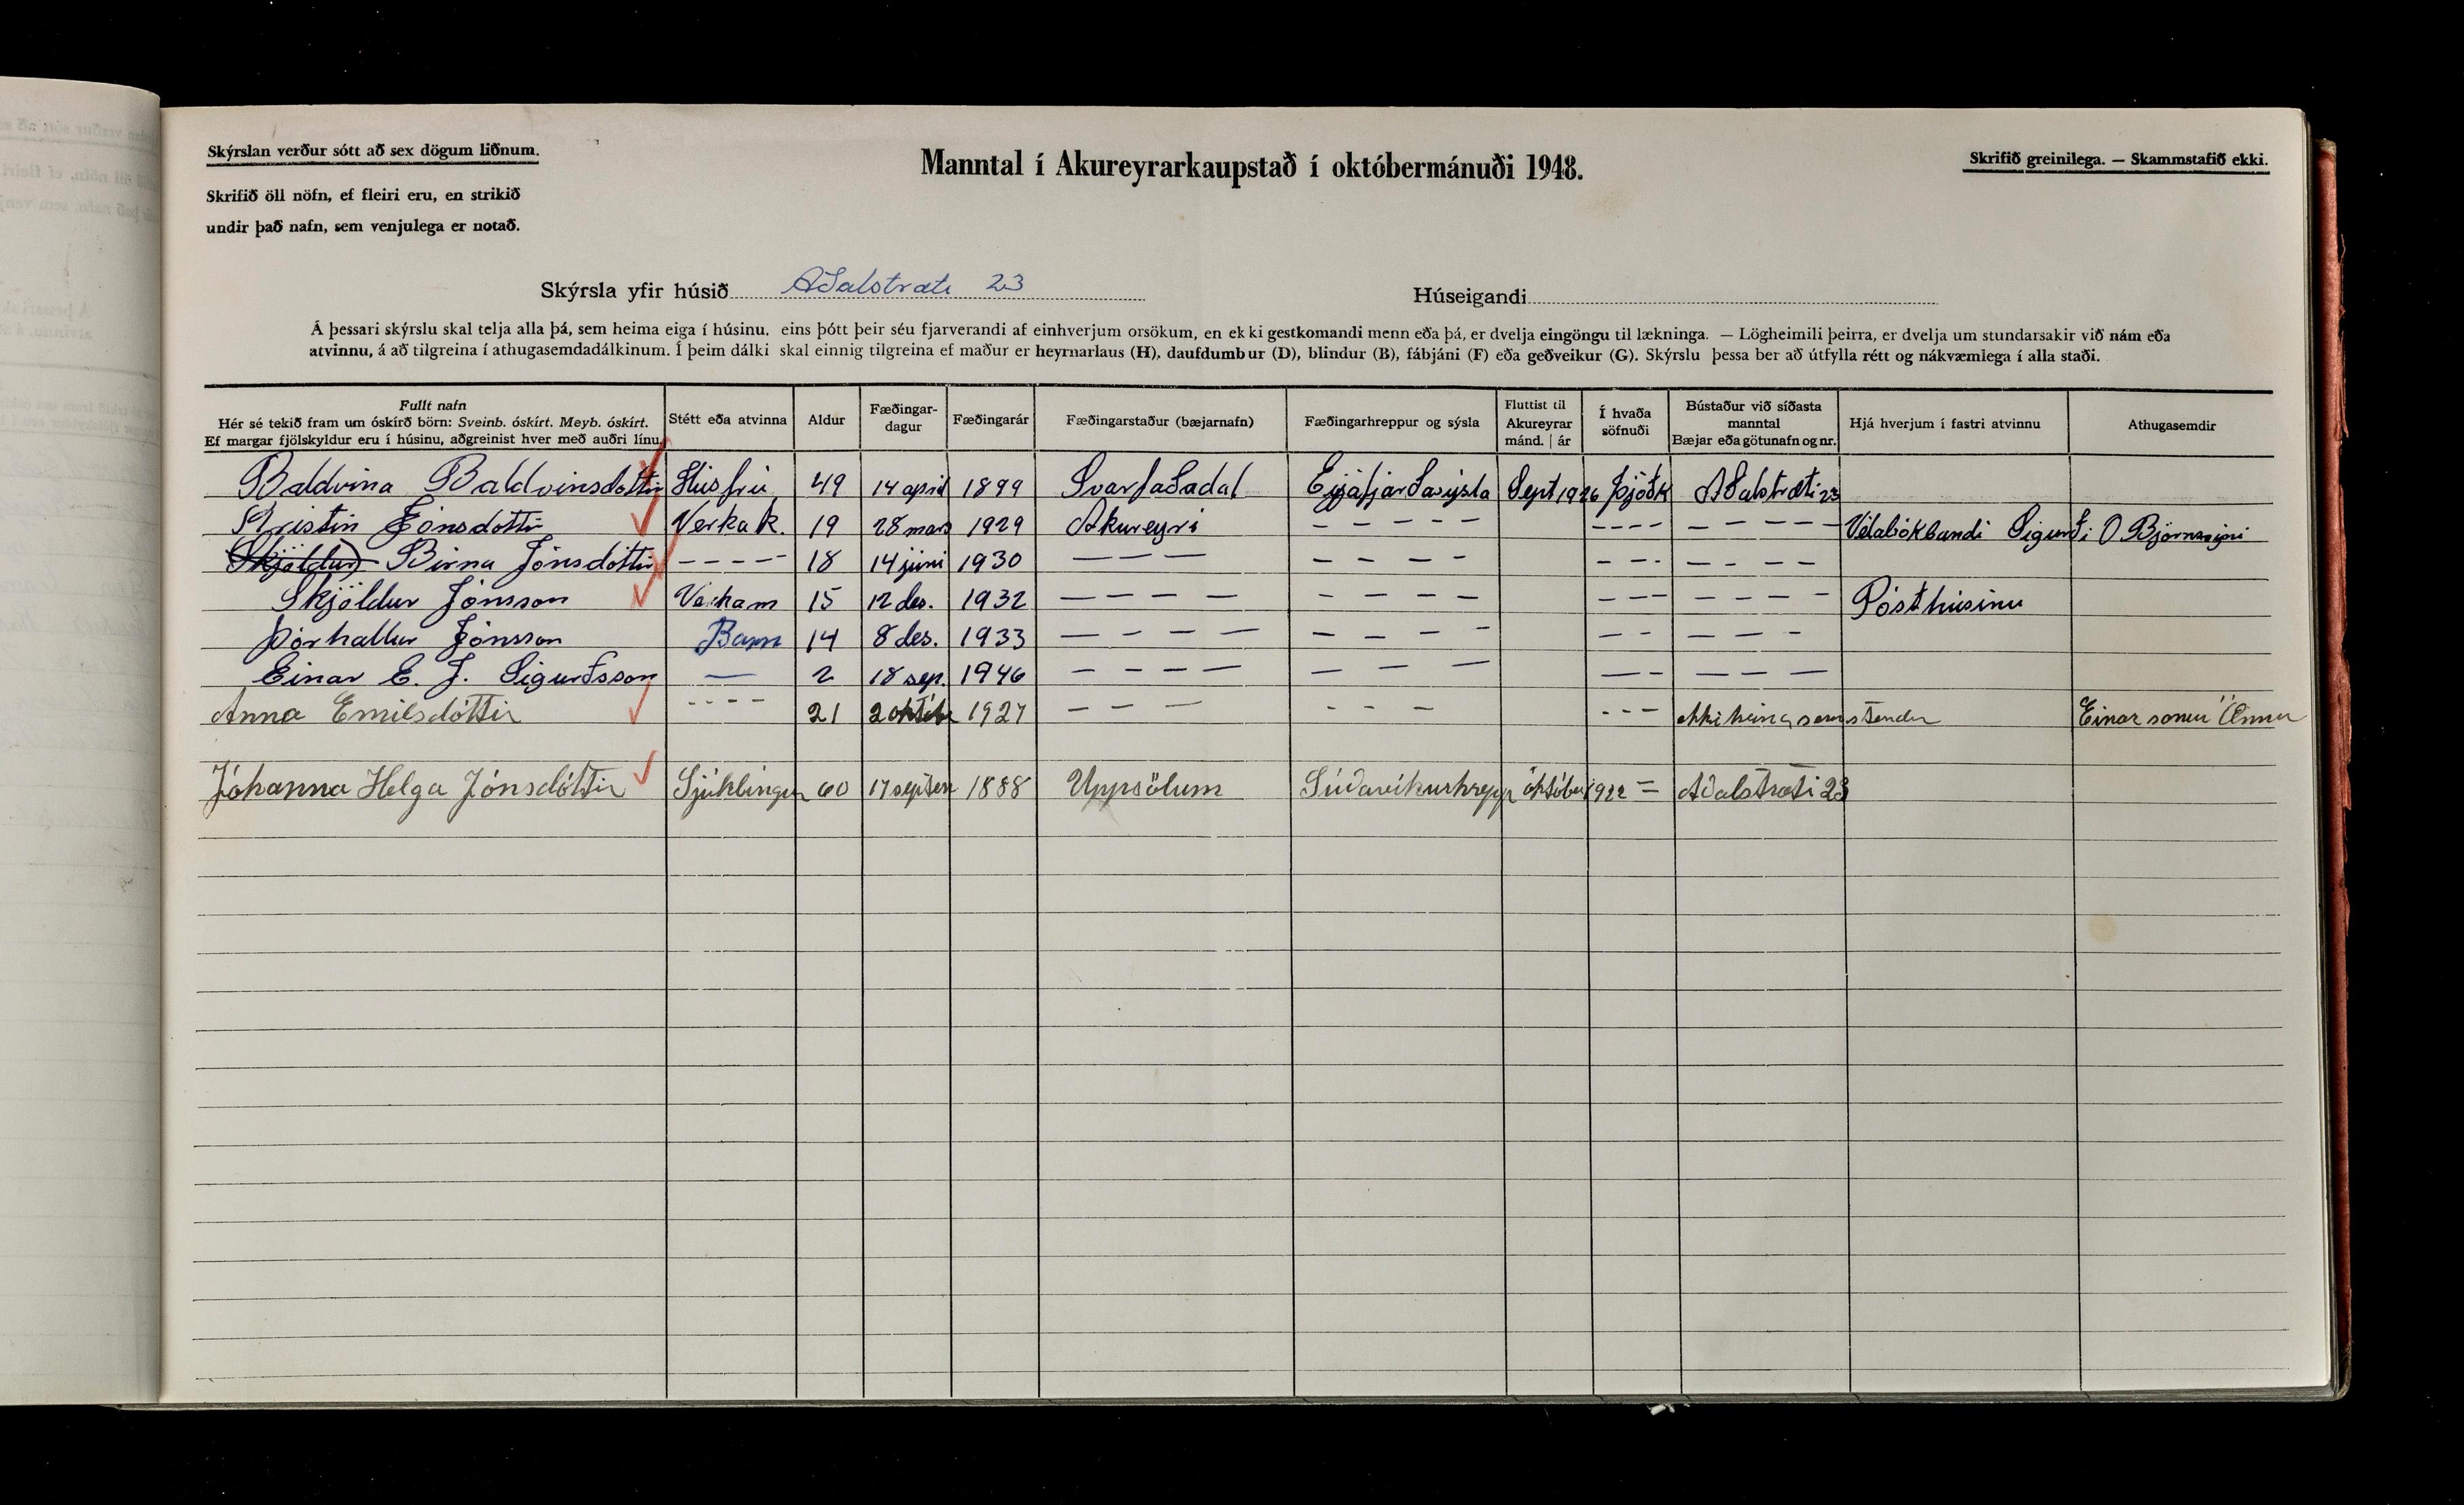 Skýrslan verður sótt að sex dögum liðnum.
Manntal í Akureyrarkaupstað í októbermánuði 1948.
Skrifið greinilega. — Skammstafið ekki.
Skrifið öll nöfn, ef fleiri eru, en strikið
undir það nafn, sem venjulega er notað.
Skýrsla yfir húsið Aðalstræti 23 Húseigandi
Á þessari skýrslu skal telja alla þá, sem heima eiga í húsinu, eins þótt þeir séu fjarverandi af einhverjum orsökum, en ekki gestkomandi menn eða þá, er dvelja eingöngu til lækninga. — Lögheimili þeirra, er dvelja um stundarsakir við nám eða
atvinnu, á að tilgreina í athugasemdadálkinum. Í þeim dálki skal einnig tilgreina ef maður er heyrnarlaus (H), daufdumbur (D), blindur (B), fábjáni (F) eða geðveikur (G). Skýrslu þessa ber að útfylla rétt og nákvæmlega í alla staði.
Fullt nafn
Hér sé tekið fram um óskírð börn: Sveinb. óskírt. Meyb. óskírt.
Ef margar fjölskyldur eru í húsinu, aðgreinist hver með auðri línu.
Stétt eða atvinna
Aldur
Fæðingar-
dagur
Fæðingarár
Fæðingarstaður (bæjarnafn)
Fæðingarhreppur og sýsla
Fluttist til
Akureyrar
mánd. | ár
Í hvaða
söfnuði
Bústaður við síðasta
manntal
Bæjar eða götunafn og nr.
Hjá hverjum í fastri atvinnu
Athugasemdir
Baldvina Baldvinsdóttir Húsfrú 49 14 apríl 1899 Svarfaðadal Eyjafjarðasýsla Sept 1926 Þjóðk Aðalstræti 23
Kristín Jónsdóttir Verkak. 19 28 mars 1929 Akureyri - - - - - - - - - - - - - - Vélabókbandi Sigurði O Björnssyni
Skjöldur Birna Jónsdóttir - - - - 18 14 júni 1930 — — — - - - - - - - - - - -
Skjöldur Jónsson Verkam 15 12 des. 1932 — — — — - - - - - - - - - - - - Pósthúsinu
Þórhallur Jónsson Barn 14 8 des. 1933 — — — — - - - - - - - - -
Einar E. J. Sigurðsson — 2 18 sep. 1946 — — — — — — — — - — — — —
Anna Emilsdóttir - - - - 21 2 október 1927 — — — - - - - - - ekki heima sem stendur Einar sonur Önnu
Jóhanna Helga Jónsdóttir Sjúklingur 60 17 septem 1888 Uppsölum Súðavíkurhrepp október 1922 = Aðalstræti 23